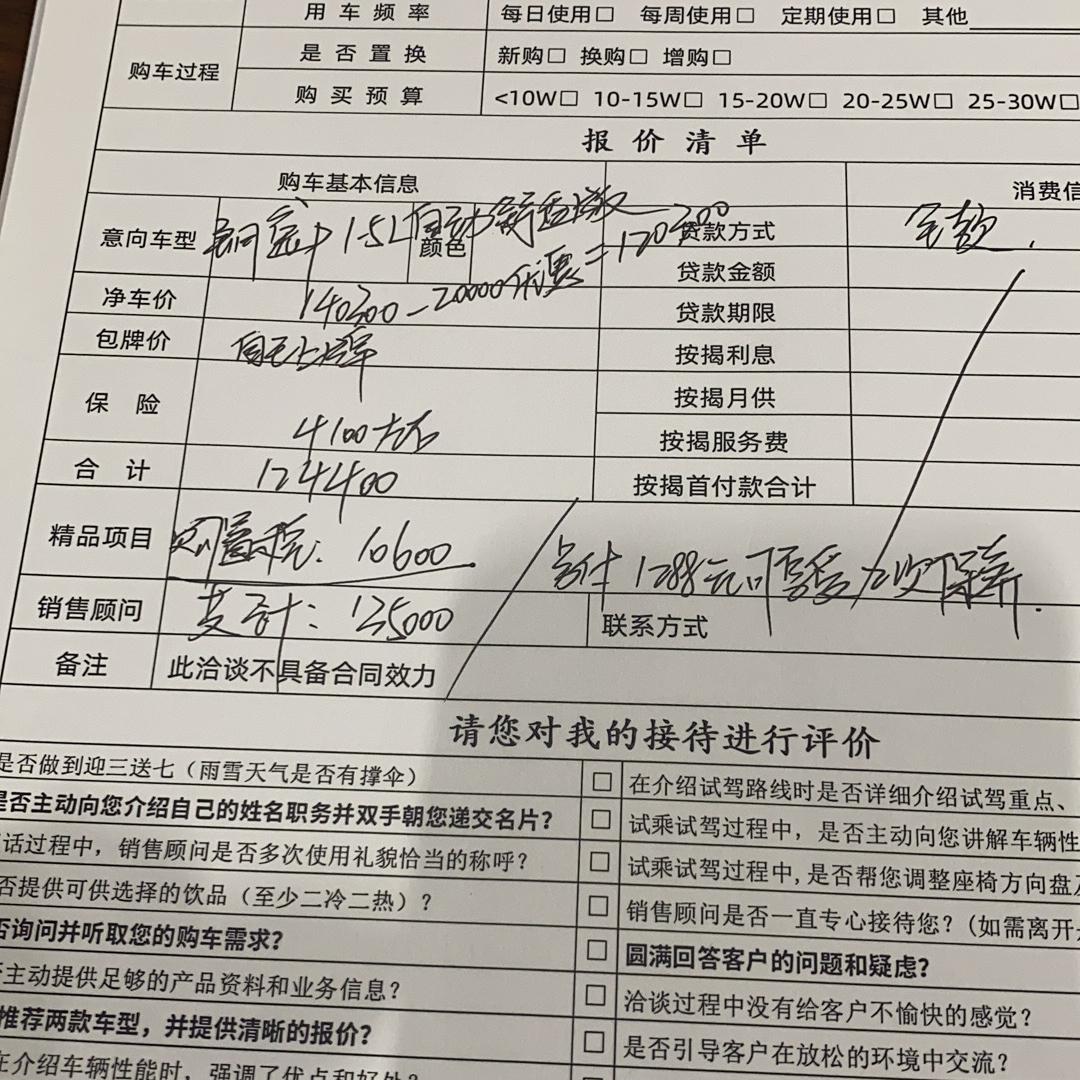 用车频率 每日使用□ 每周使用□ 定期使用□ 其他
购车过程 是否置换 新购□ 换购□ 增购□
购买预算 <10W□ 10-15W□ 15-20W□ 20-25W□ 25-30W□
报价清单
购车基本信息 消费信
意向车型 1.5L自动 颜色 贷款方式 全款.
净车价 140300-20000 =120300 贷款金额
贷款期限
包牌价 自己上牌 按揭利息
保险 4100左右 按揭月供
按揭服务费
合计 124400 按揭首付款合计
精品项目 购置税: 10600 另付1288元可享受 次保养.
销售顾问 总计: 135000 联系方式
备注 此洽谈不具备合同效力
请您对我的接待进行评价
是否做到迎三送七（雨雪天气是否有撑伞） □ 在介绍试驾路线时是否详细介绍试驾重点、
是否主动向您介绍自己的姓名职务并双手朝您递交名片? □ 试乘试驾过程中，是否主动向您讲解车辆性
话过程中，销售顾问是否多次使用礼貌恰当的称呼? □ 试乘试驾过程中,是否帮您调整座椅方向盘及
否提供可供选择的饮品（至少二冷二热）? □ 销售顾问是否一直专心接待您?(如需离开
否询问并听取您的购车需求? □ 圆满回答客户的问题和疑虑?
主动提供足够的产品资料和业务信息? □ 洽谈过程中没有给客户不愉快的感觉?
推荐两款车型，并提供清晰的报价? □ 是否引导客户在放松的环境中交流?
在介绍车辆性能时，强调了优点和好处?